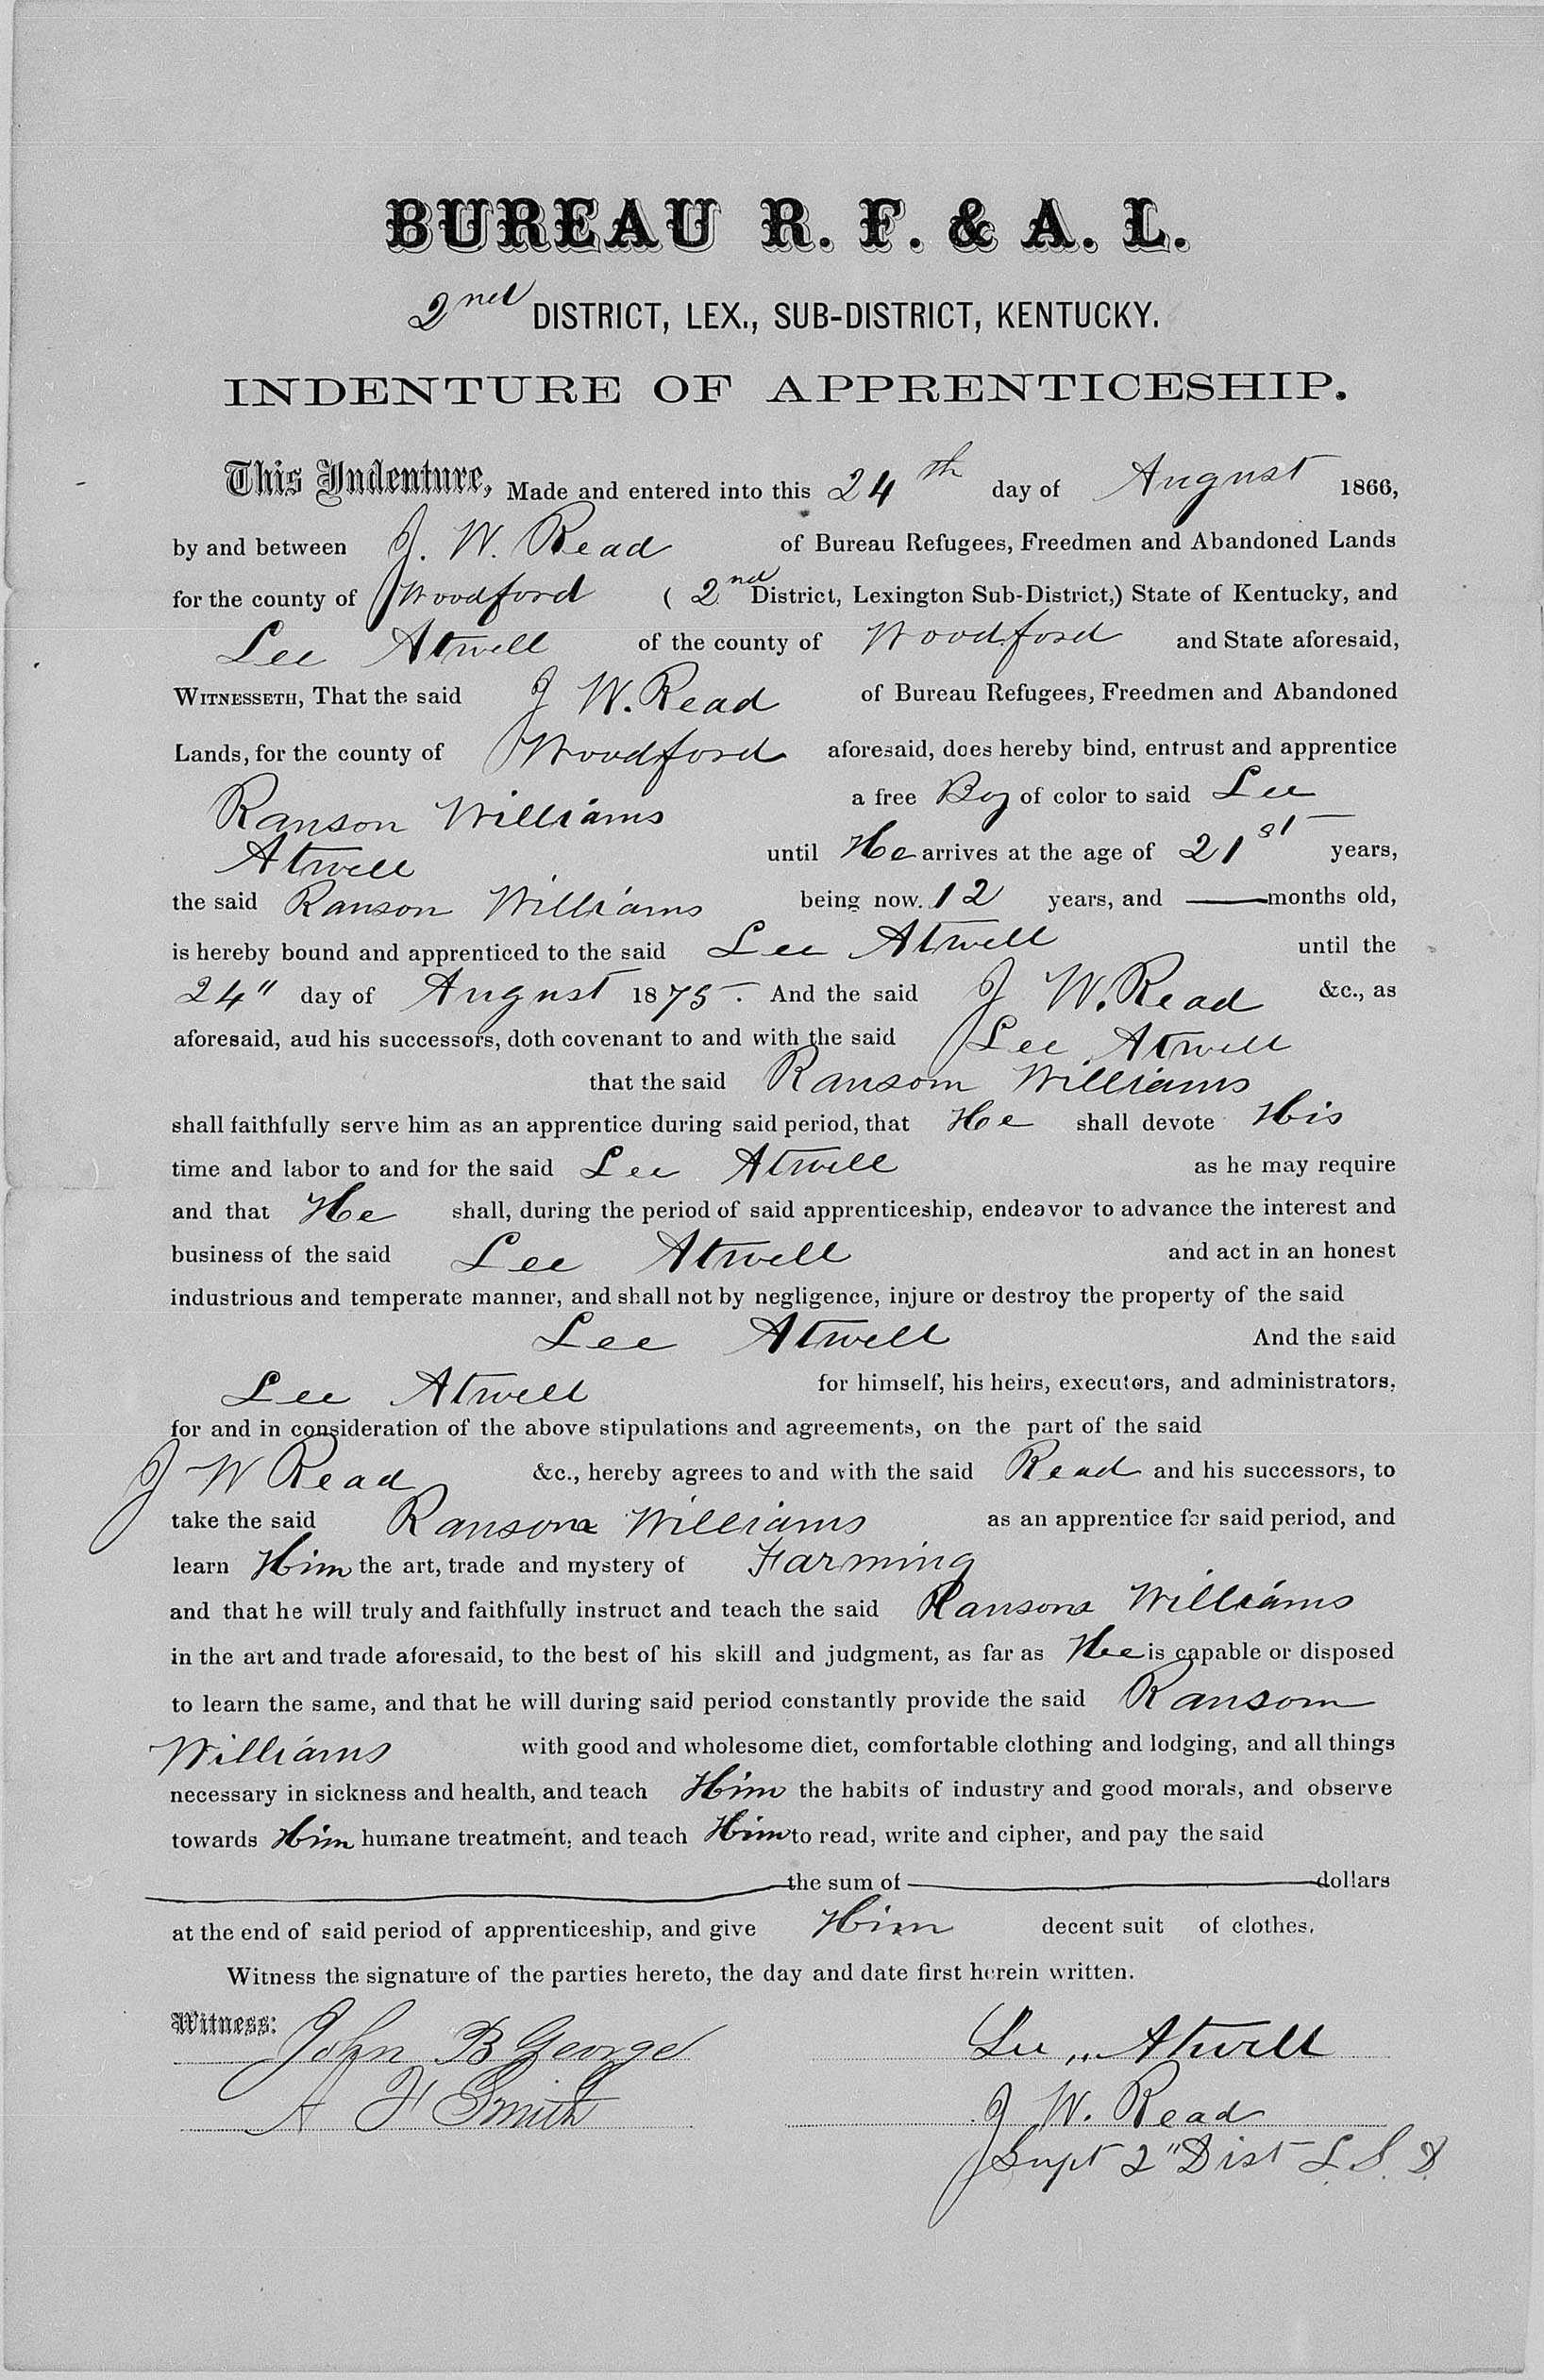 BUREAU R. F. & A. L.
2nd DISTRICT, LEX., SUB-DISTRICT, KENTUCKY.
INDENTURE OF APPRENTICESHIP.
This Indenture, Made and entered into this 24th day of August 1866,
by and between J. W. Read of Bureau Refugees, Freedmen and Abandoned Lands
for the county of Woodford (2nd District, Lexington Sub-District,) State of Kentucky, and
Lee Atwell of the county of Woodford and State aforesaid,
WITNESSETH, That the said J W. Read of Bureau Refugees, Freedmen and Abandoned
Lands, for the county of Woodford aforesaid, does hereby bind, entrust and apprentice
Ranson Williams a free Boy of color to said Lee
Atwell until He arrives at the age of 21st years,
the said Ranson Williams being now. 12 years, and — months old,
is hereby bound and apprenticed to the said Lee Atwell until the
24" day of August 1875. And the said J W. Read &c., as
aforesaid, aud his successors, doth covenant to and with the said Lee Atwell
that the said Ransom Williams
shall faithfully serve him as an apprentice during said period, that He shall devote His
time and labor to and for the said Lee Atwell as he may require
and that He shall, during the period of said apprenticeship, endeavor to advance the interest and
business of the said Lee Atwell and act in an honest
industrious and temperate manner, and shall not by negligence, injure or destroy the property of the said
Lee Atwell And the said
Lee Atwell for himself, his heirs, executors, and administrators,
for and in consideration of the above stipulations and agreements, on the part of the said
J W Read &c., hereby agrees to and with the said Read and his successors, to
take the said Ransone Williams as an apprentice for said period, and
learn Him the art, trade and mystery of Farming
and that he will truly and faithfully instruct and teach the said Ransone Williams
in the art and trade aforesaid, to the best of his skill and judgment, as far as Hee is capable or disposed
to learn the same, and that he will during said period constantly provide the said Ransom
Williams with good and wholesome diet, comfortable clothing and lodging, and all things
necessary in sickness and health, and teach Him the habits of industry and good morals, and observe
towards Him humane treatment, and teach Him to read, write and cipher, and pay the said
— the sum of — dollars
at the end of said period of apprenticeship, and give Him decent suit of clothes.
Witness the signature of the parties hereto, the day and date first herein written.
Witness: John B George Lee Atwell
A F Smith J W. Read
Supt 2" Dist L. S. D.